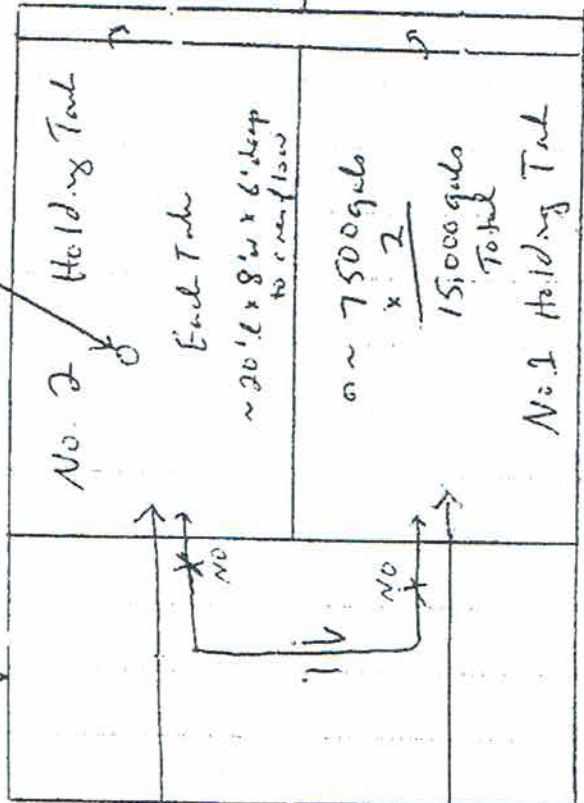 No. 2 Holding Tank
Each Tank
~ 20'l x 8'w x 6' deep
to overflow
NO
NO
~ 7500 gals
x 2
15,000 gals
Total
No. 1 Holding Tank